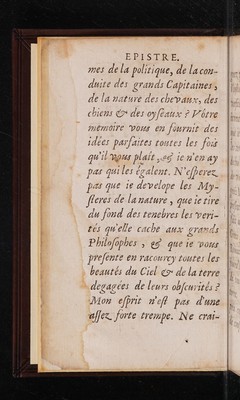 EPISTRE.
mes de la politique, de la con-
duite des grands Capitaines,
de la nature des chevaux, des
chiens & des oyſeaux ? Vôtre
memoire vous en fournit des
idées parfaites toutes les fois
qu'il vous plaît, & ie n'en ay
pas qui les égalent. N'eſperez
pas que ie dévelope les My-
ſteres de la nature, que ie tire
du fond des tenebres les veri-
tés qu'elle cache aux grands
Philoſophes, & que ie vous
preſente en racourcy toutes les
beautés du Ciel & de la terre
degagées de leurs obſcurités ?
Mon eſprit n'eſt pas d'une
aſſez forte trempe. Ne crai-